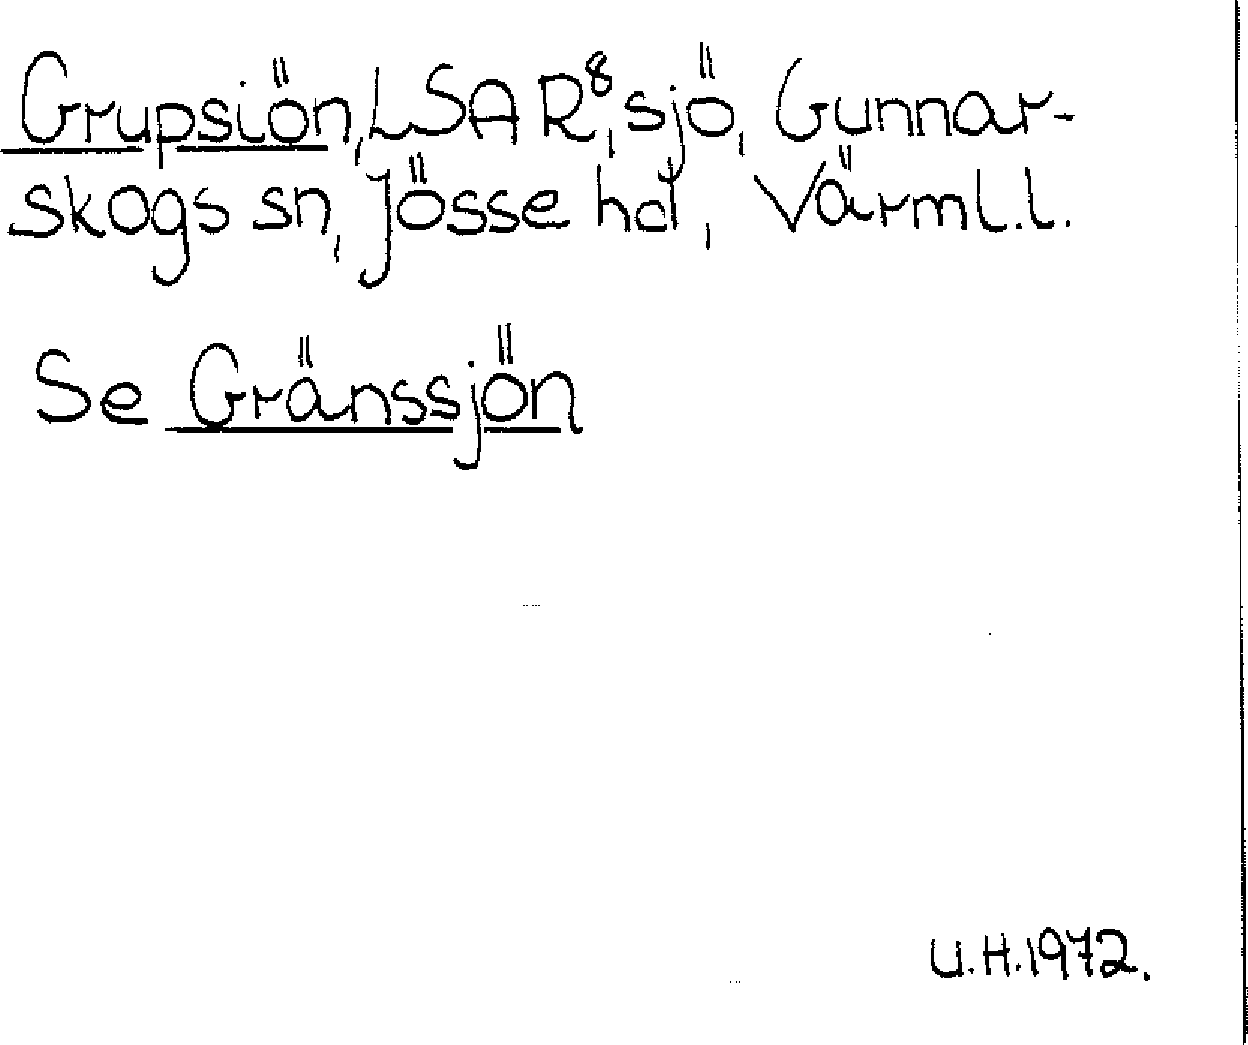 Grupsiön, LSA R⁸, sjö, Gunnar-
skogs sn, Jösse hd, Värml. l.
Se Gränssjön
U.H. 1972.